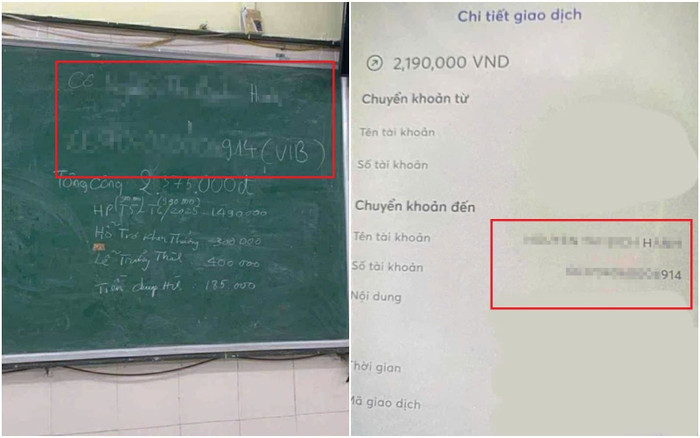 Cô
914 (VIB)
Tổng cộng: 2.375.000đ
HP T5 - T6/2025 1490000
Hỗ Trợ 300 000
Lễ Trưởng Thành 400 000
Tiền chụp 185.000
Chi tiết giao dịch
2,190,000 VND
Chuyển khoản từ
Tên tài khoản
Số tài khoản
Chuyển khoản đến
Tên tài khoản
Số tài khoản 914
Nội dung
Thời gian
Mã giao dịch